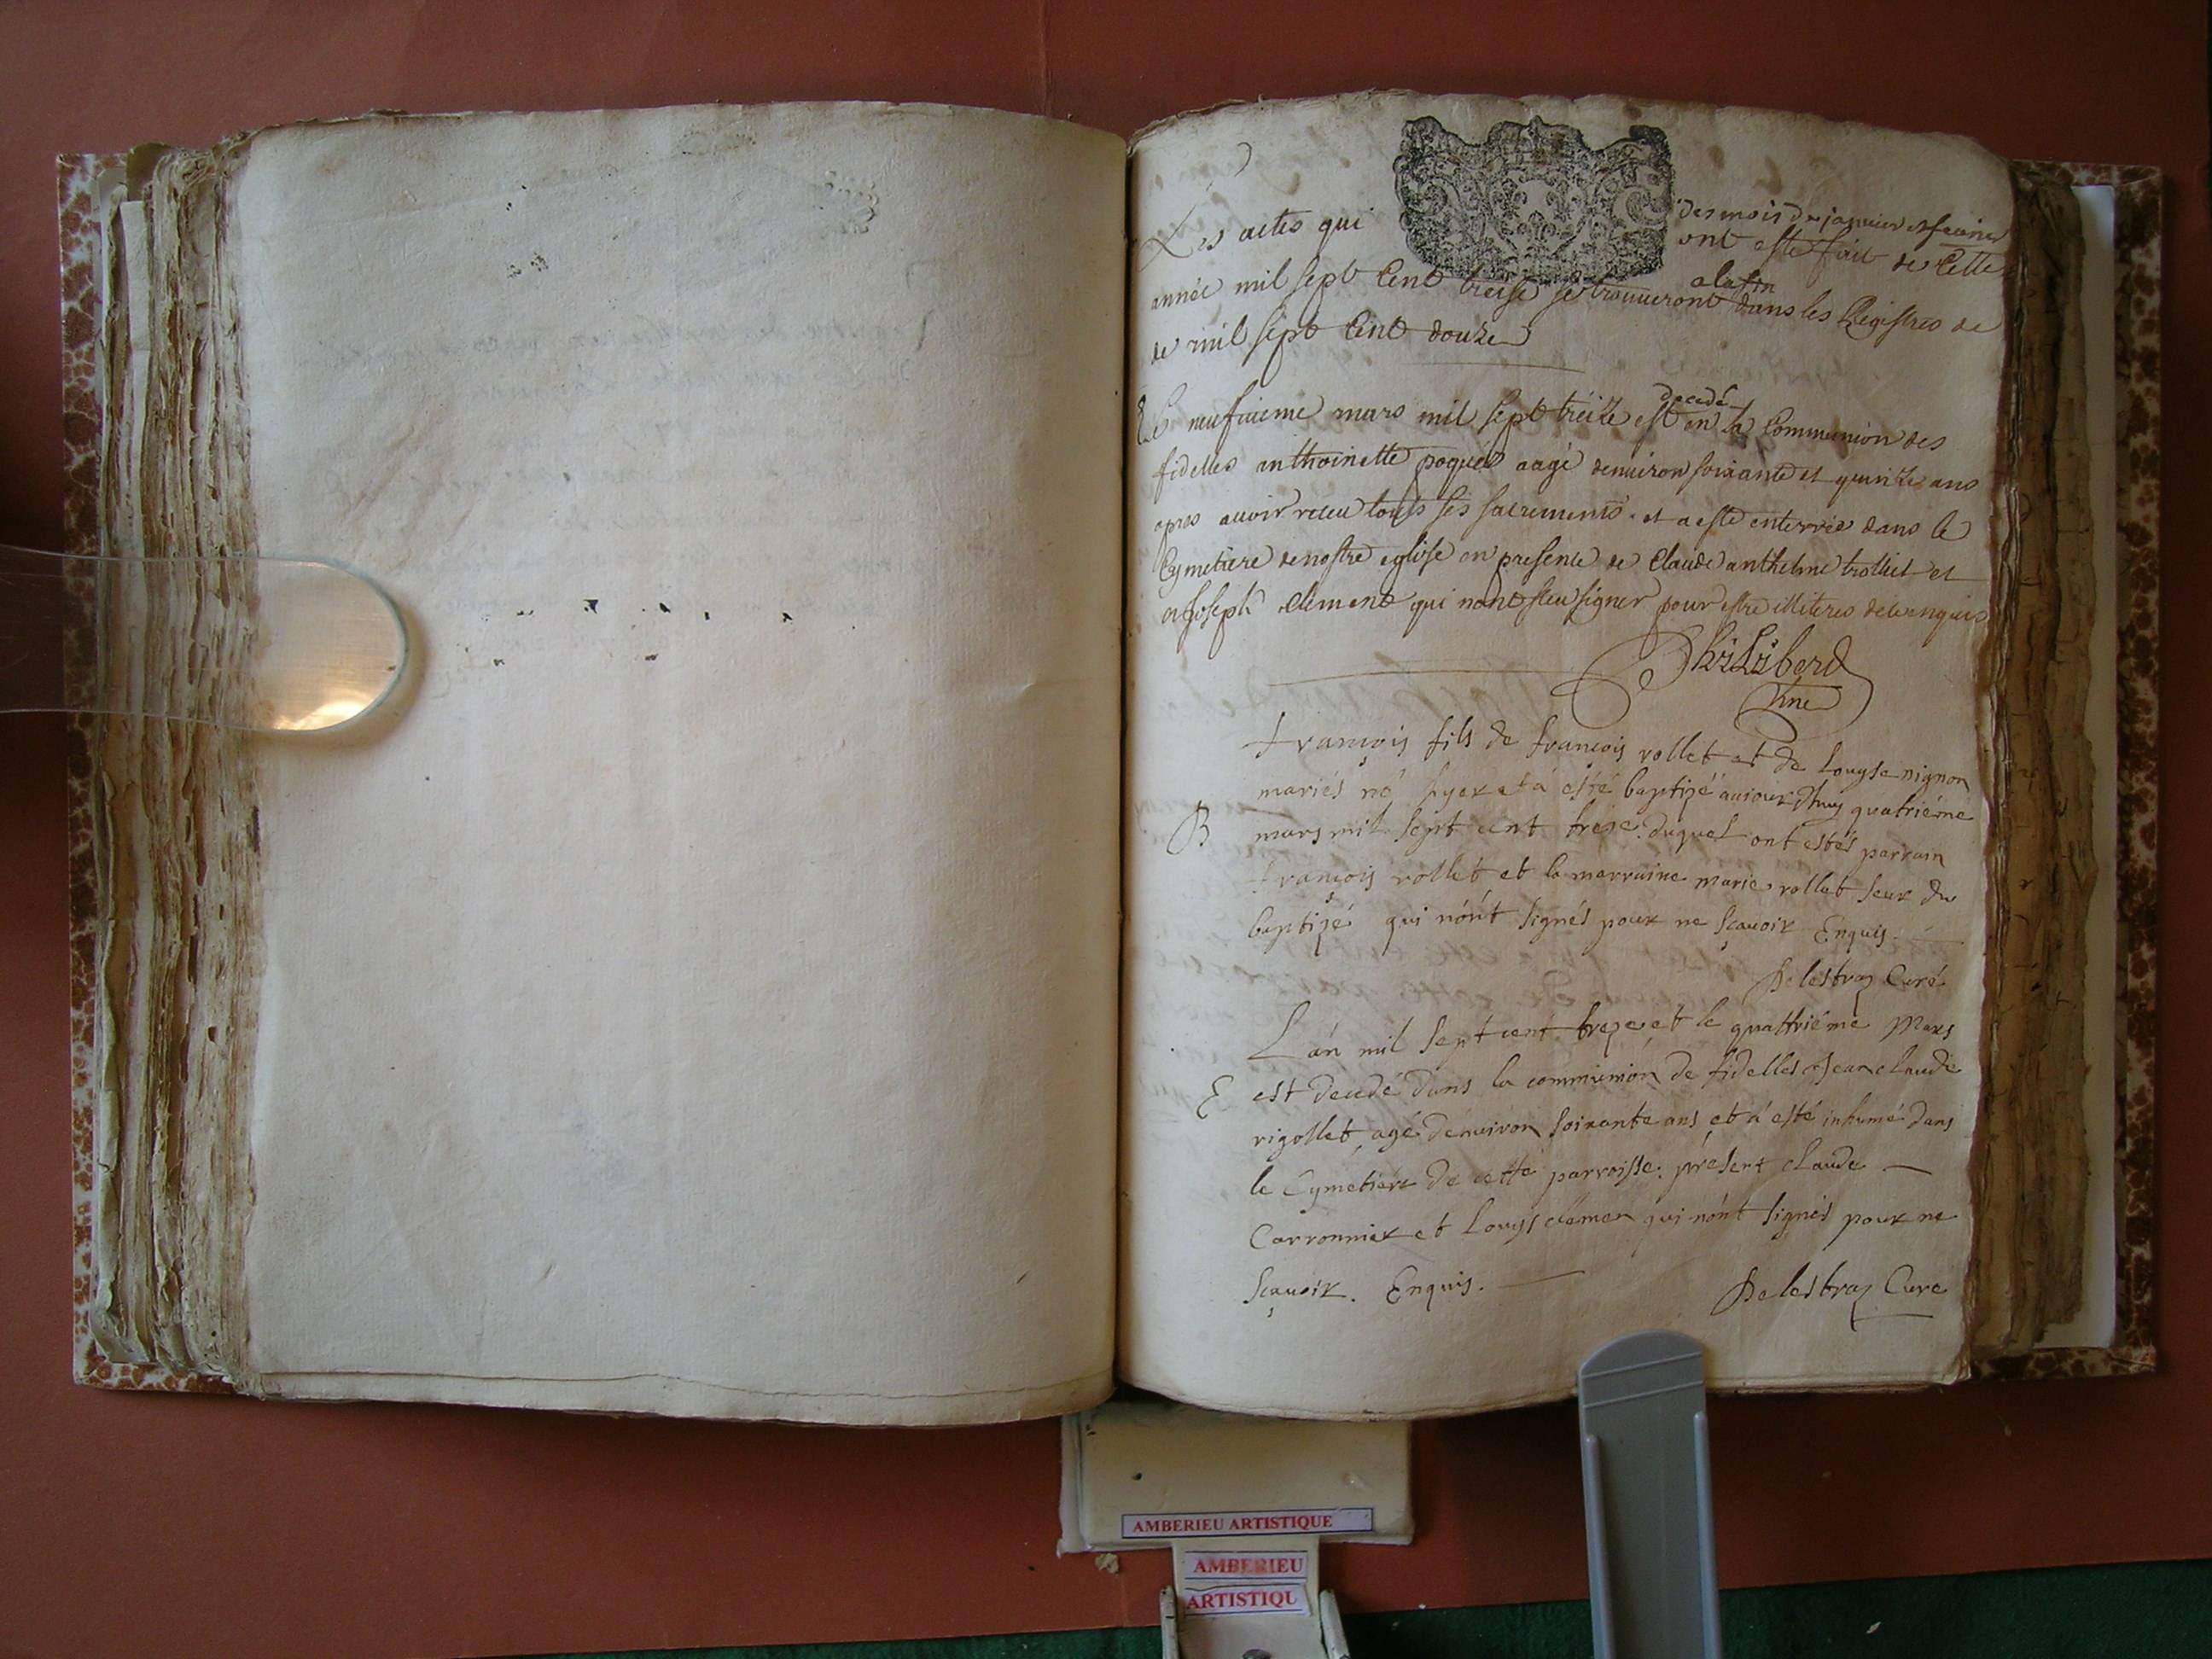 des mois de janvier et fevrier
Les actes qui ont este fait de cette
a la fin
année mil sept cent treise se trouueront dans les Registres de
de mil sept cent douze
decedé
E Le neufuieme mars mil sept treize est en la Communion des
fidelles anthoinette poques aagé denuiron soixante et quinze ans
apres auoir receu touts ses sacrements. et a este enterrée dans le
Cymetiere de nostre eglise en presence de Claude anthelme trollist et
et Joseph Clement qui nont sceu signer pour estre illiteres de ce enquis
Philibert
françois fils de françois rollet et de Louyse nignon
mariés né hyer et á esté baptizé auiourdhuy quatriéme
B mars mil sept cent treze. duquel ont estés parrain
françois rollet et la marraine marie rollet seur du
baptizé qui nónt signés pour ne sçauoir Enquis.
Delestraz Curé
Lán mil sept cent treze et le quattriéme Mars
E est decedé dans la communion de fidelles Jean claude
rigollet, agé dénuiron soixante ans et á esté inhumé dans
le Cymetiére de cette parroisse. présent claude
Carronnier et Louys clémen qui nónt signés pour ne
sçauoir. Enquis.
Delestraz Cure
AMBERIEU ARTISTIQUE
AMBERIEU
ARTISTIQU